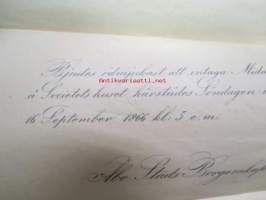 Bjudes ödmjukast att intaga Midd
å Societetshuset härstädes Söndagen
16 September 1866 kl. 3 e.m.
Åbo Stads Borgerskap
Antikvariaatti.net